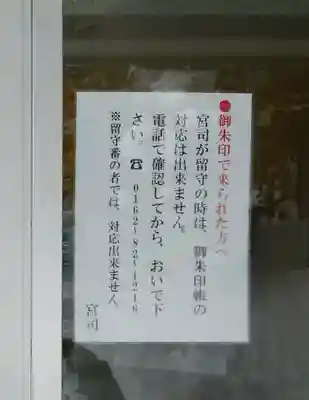 ●御朱印で来られた方へ
宮司が留守の時は、御朱印帳の
対応は出来ません。
電話で確認してから、おいで下
さい。☎0162-82-1216
※留守番の者では、対応出来ません。
宮司